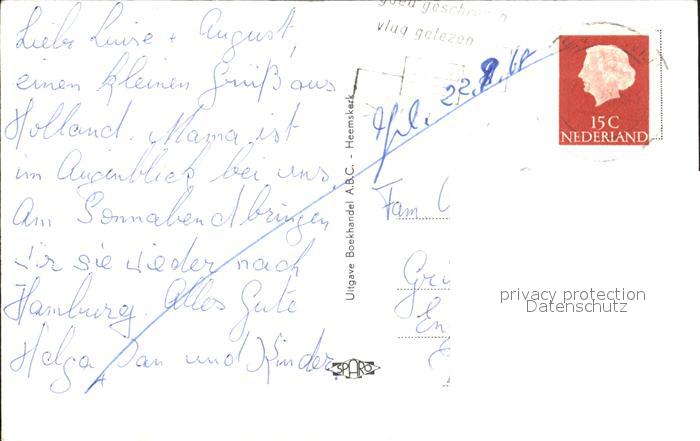 Liebe Luise + August,
einen kleinen Gruß aus
Holland. Mama ist
im Augenblick bei uns.
Am Sonnabend bringen
wir sie wieder nach
Hamburg. Alles Gute
Helga, Jan und Kinder
goed geschreven
vlug gelezen
22.8.
15 C
NEDERLAND
Uitgave Boekhandel A.B.C. - Heemskerk
Fam.
privacy protection
Datenschutz
SPARO